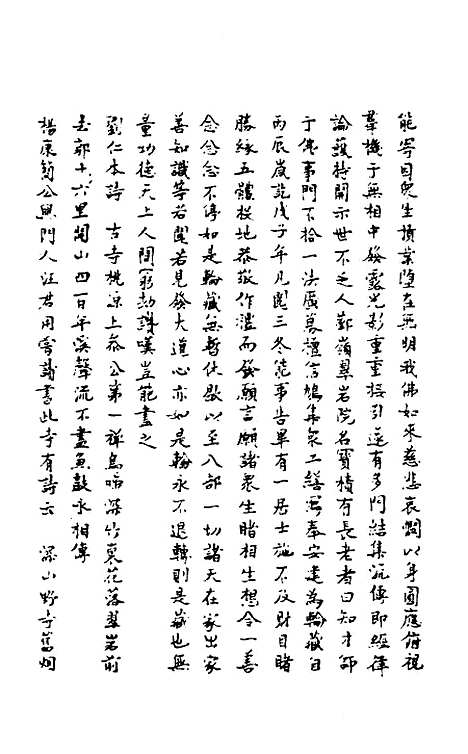 能寄目眾生積業墮在無明我佛如來慈悲哀憫以身圓應俯視
羣機于無相中發露光影重重接引遂有多門結集流傳即經律
論護持開示世不乏人鄞嶺翠岩院名寶積有長老者曰知才師
于佛事門下拾一決廣募檀信鳩集眾工繕寫奉安建為輪藏自
丙辰歲訖戊子年凡閱三冬能事告畢有一居士施不及財目睹
勝緣五體投地恭敬作禮而發願言願諸眾生睹相生想令一善
念念念不停如是輪藏無暫休歇以至八部一切諸天在家出家
善知識等若聞若見發大道心亦如是輪永不退轉則是藏也無
量功德天上人間窮劫讚嘆豈能盡之
劉仁本詩 古寺桃源上恭公第一禪鳥啼深竹裏花落翠岩前
去郭十六里開山四百年溪聲流不盡魚鼓永相傳
楊康簡公與門人汪君用霄讀書此寺有詩云 深山野寺舊烟